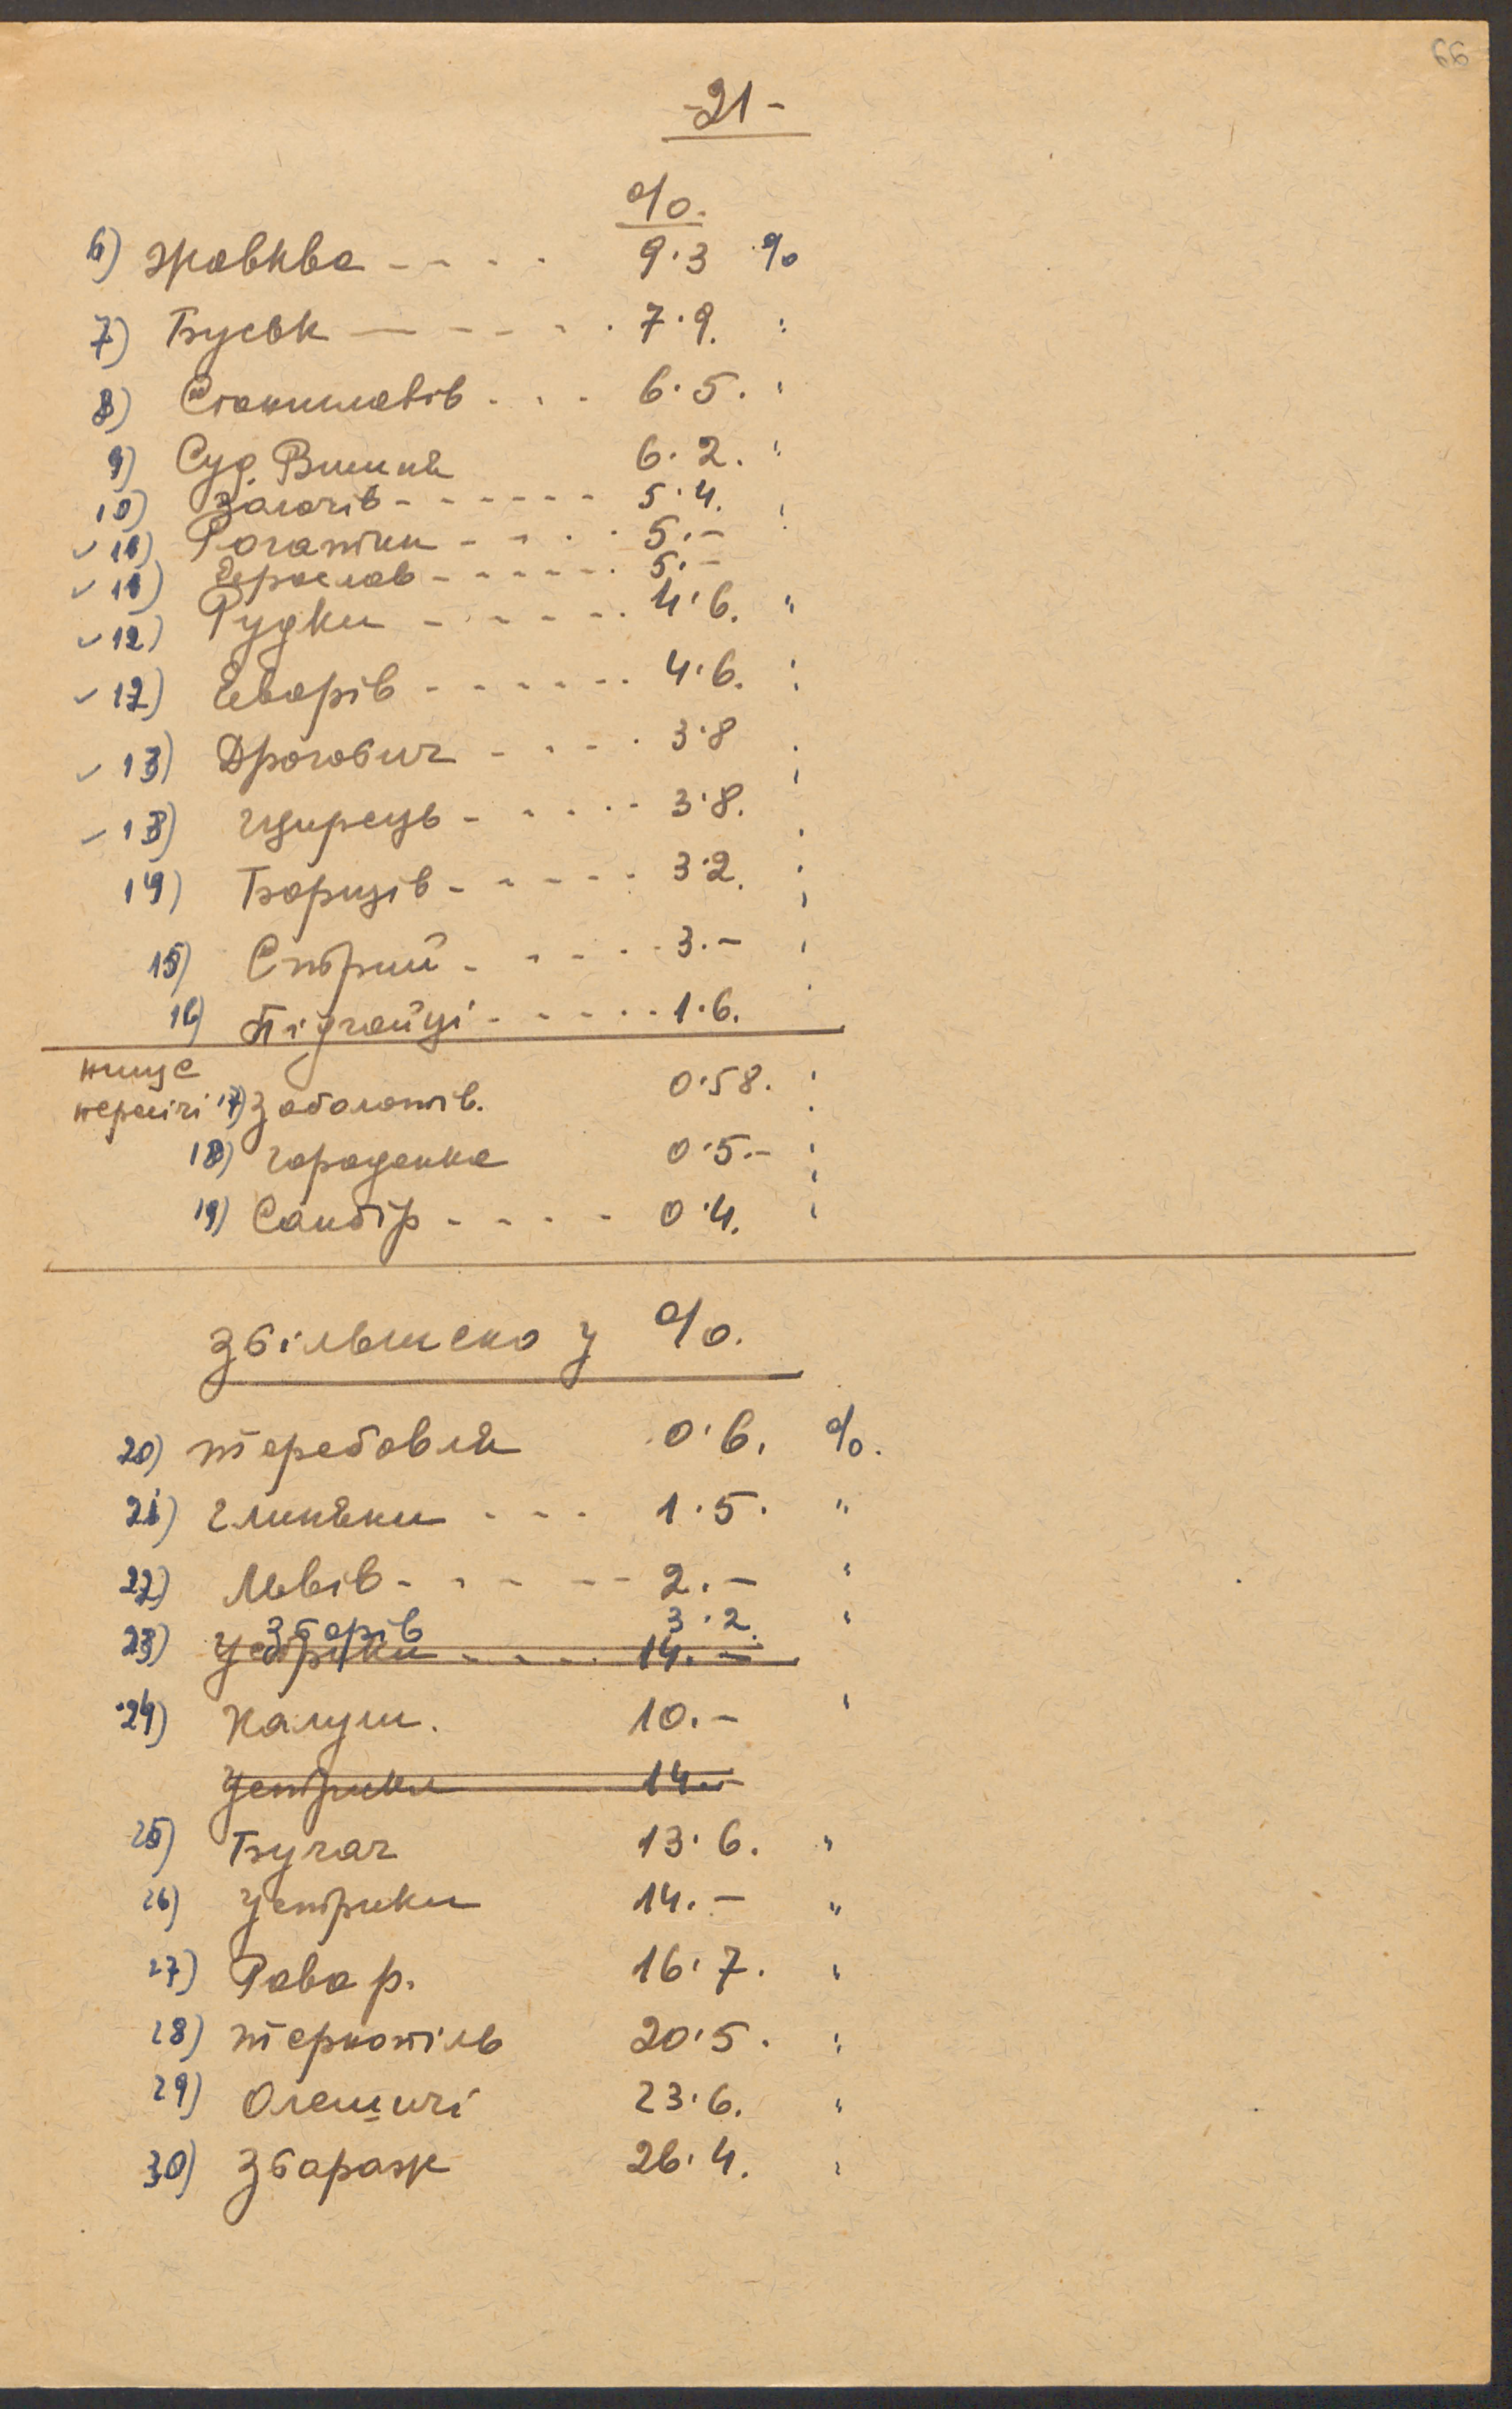 66
-21-
%.
6) Жовква - - - - 9·3 %
7) Буськ - - - - - 7·9. "
8) Станиславів . . . 6·5. "
9) Суд. Вишня 6·2. "
10) Золочів - - - - - - 5·4. "
✓ 11) Рогатин - - - - 5.- "
✓ 11) Ярослав - - - - - - 5.-
✓ 12) Рудки - - - - - - 4·6. "
✓ 12) Яворів - - - - - - 4·6. "
✓ 13) Дрогобич - - - - 3·8 "
✓ 13) Щирець - - - - - 3·8. "
14) Борщів - - - - - 3·2. "
15) Стрий - - - - - 3.- "
16) Підгайці - - - - - 1·6. "
17) Заболотів. 0·58. "
18) Городенка 0·5.- "
19) Самбір - - - - 0·4. "
Збільшено у %.
20) Теребовля 0·6. %.
21) Глиняни - - - 1·5. "
22) Львів - - - - - 2.- "
Зборів 3·2. "
23) Устрики - - - - 14.-
24) Калуш. 10.- "
Устрики 14.-
25) Бучач 13·6. "
26) Устрики 14.- "
27) Рава р. 16·7. "
28) Тернопіль 20·5. "
29) Олешичі 23·6. "
30) Збараж 26·4. "